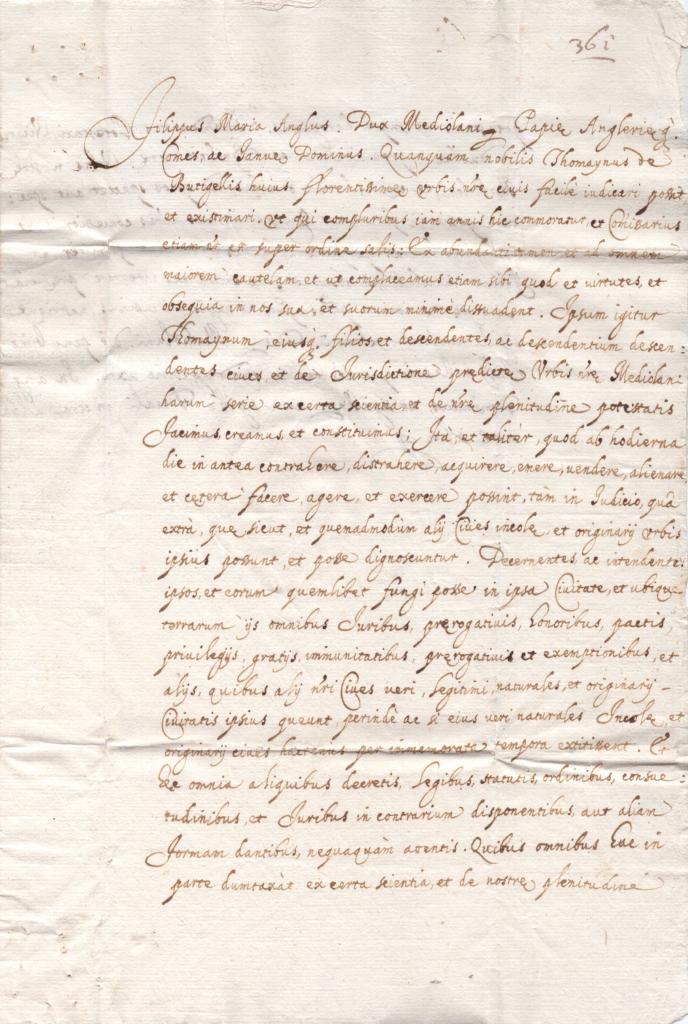 361
Filippus Maria Anglus Dux Mediolani Papie Anglerieq.
Comes, ac Janue Dominus. Quanquàm nobilis Thomaynus de
Butigellis huius florentissime Vrbis nre civis facile iudicari possit
et existimari, vt qui compluribus iàm annis hic commoratur, et Comissarius
etiam est super ordine salis: Ex abundanti tamen et ad omnem
maiorem cautelam, et ut complaceamus etiam sibi quod et virtutes, et
obsequia in nos sua, et suorum minimè dissuadent. Ipsum igitur
Thomaynum, eiusq. filios, et descendentes, ac descendentium descen:
dentes cives, et de Jurisdictione predicte Vrbis nre Mediolani
harum serie ex certa scientia et de nre plenitudine potestatis
facimus, creamus, et constituimus: Ità, et talitèr, quod ab hodierna
die in antea contrahere, distrahere, acquirere, emere, vendere, alienare
et cetera facere, agere, et exercere possint, tàm in Judicio, quà
extrà, que sicut, et quemadmodùm alij Cives incole, et originarij vrbis
ipsius possunt, et posse dignoscuntur. Decernentes, ac intendentes
ipsos, et eorum quemlibet fungi posse in ipsa Civitate, et ubique
terrarum ijs omnibus Juribus, prerogativis, honoribus, pactis,
privilegijs, gratijs, immunitatibus, prerogativis et exemptionibus, et
alijs, quibus alij nri Cives veri, legitimi, naturales, et originarij
Civitatis ipsius queunt, perindè ac si eius veri naturales Incole, et
originarij cives hactenus per immemorata tempora extitissent. Et
hec omnia aliquibus decretis, legibus, statutis, ordinibus, consue:
tudinibus, et Juribus in contrarium disponentibus, aut aliam
formam dantibus, nequaquàm attentis. Quibus omnibus hac in
parte dumtaxàt ex certa scientia, et de nostre plenitudine